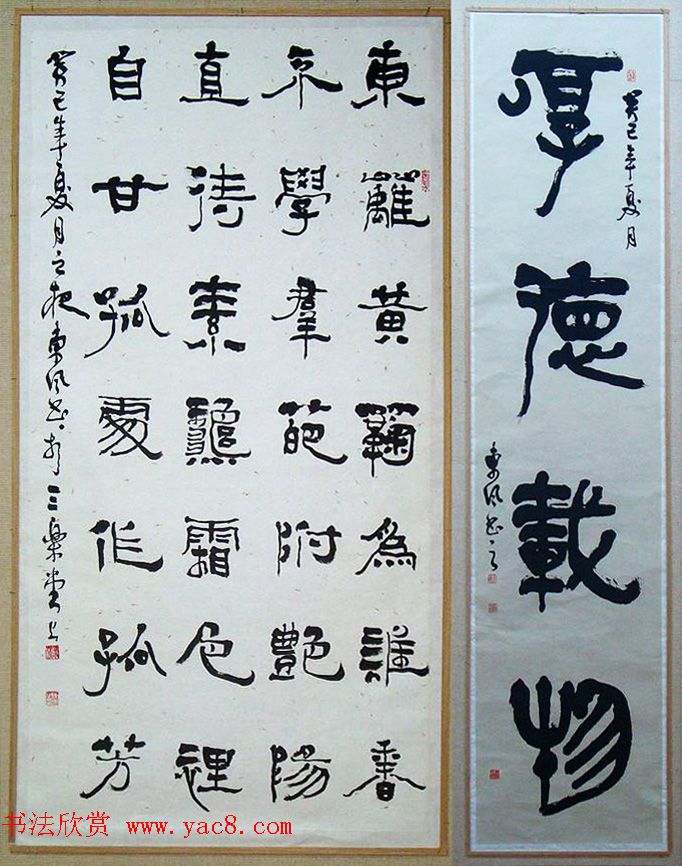 厚德載物
癸巳年夏月
東風書之
東籬黃蘜為誰香
不學羣葩附豔陽
直待素龝霜色裡
自甘孤處作孤芳
癸巳年夏月之夜東風書於三樂堂上
书法欣赏 www.yac8.com